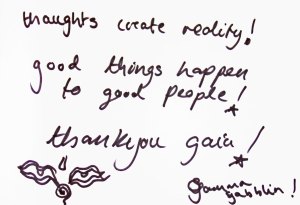 thoughts create reality!
good things happen
to good people!
thankyou gaia!
gamma
gabblin!